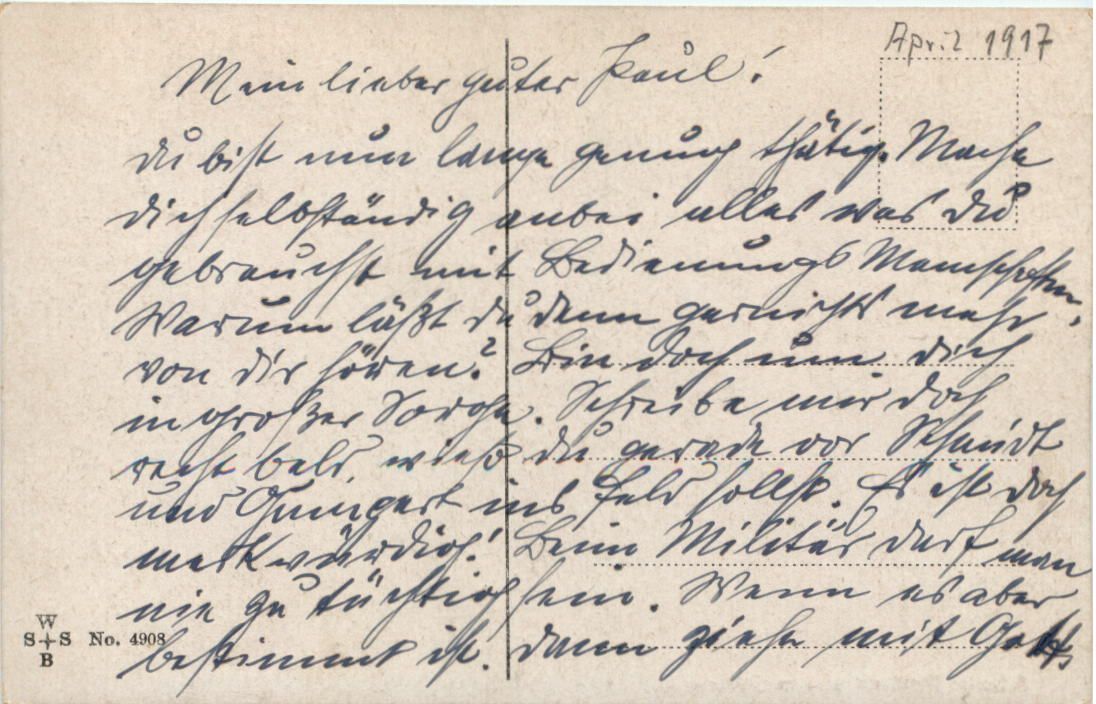 April 1917
Mein lieber guter Paul!
du bist nun lange genung thätig. Mache
dich selbständig anbei alles was du
gebrauchst mit Bedienungs Mannschaften.
Warum läßt du denn garnichts mehr
von dir hören? Bin doch um dich
in großer Sorge. Schreibe mir doch
recht bald wieso du gerade vor Schmidt
und ins Feld sollst. Es ist doch
merkwürdig! Beim Militär darf man
nie zu tüchtig sein. Wenn es aber
bestimmt ist. dann ziehe mit Gott,
W
S+S
B
No. 4908